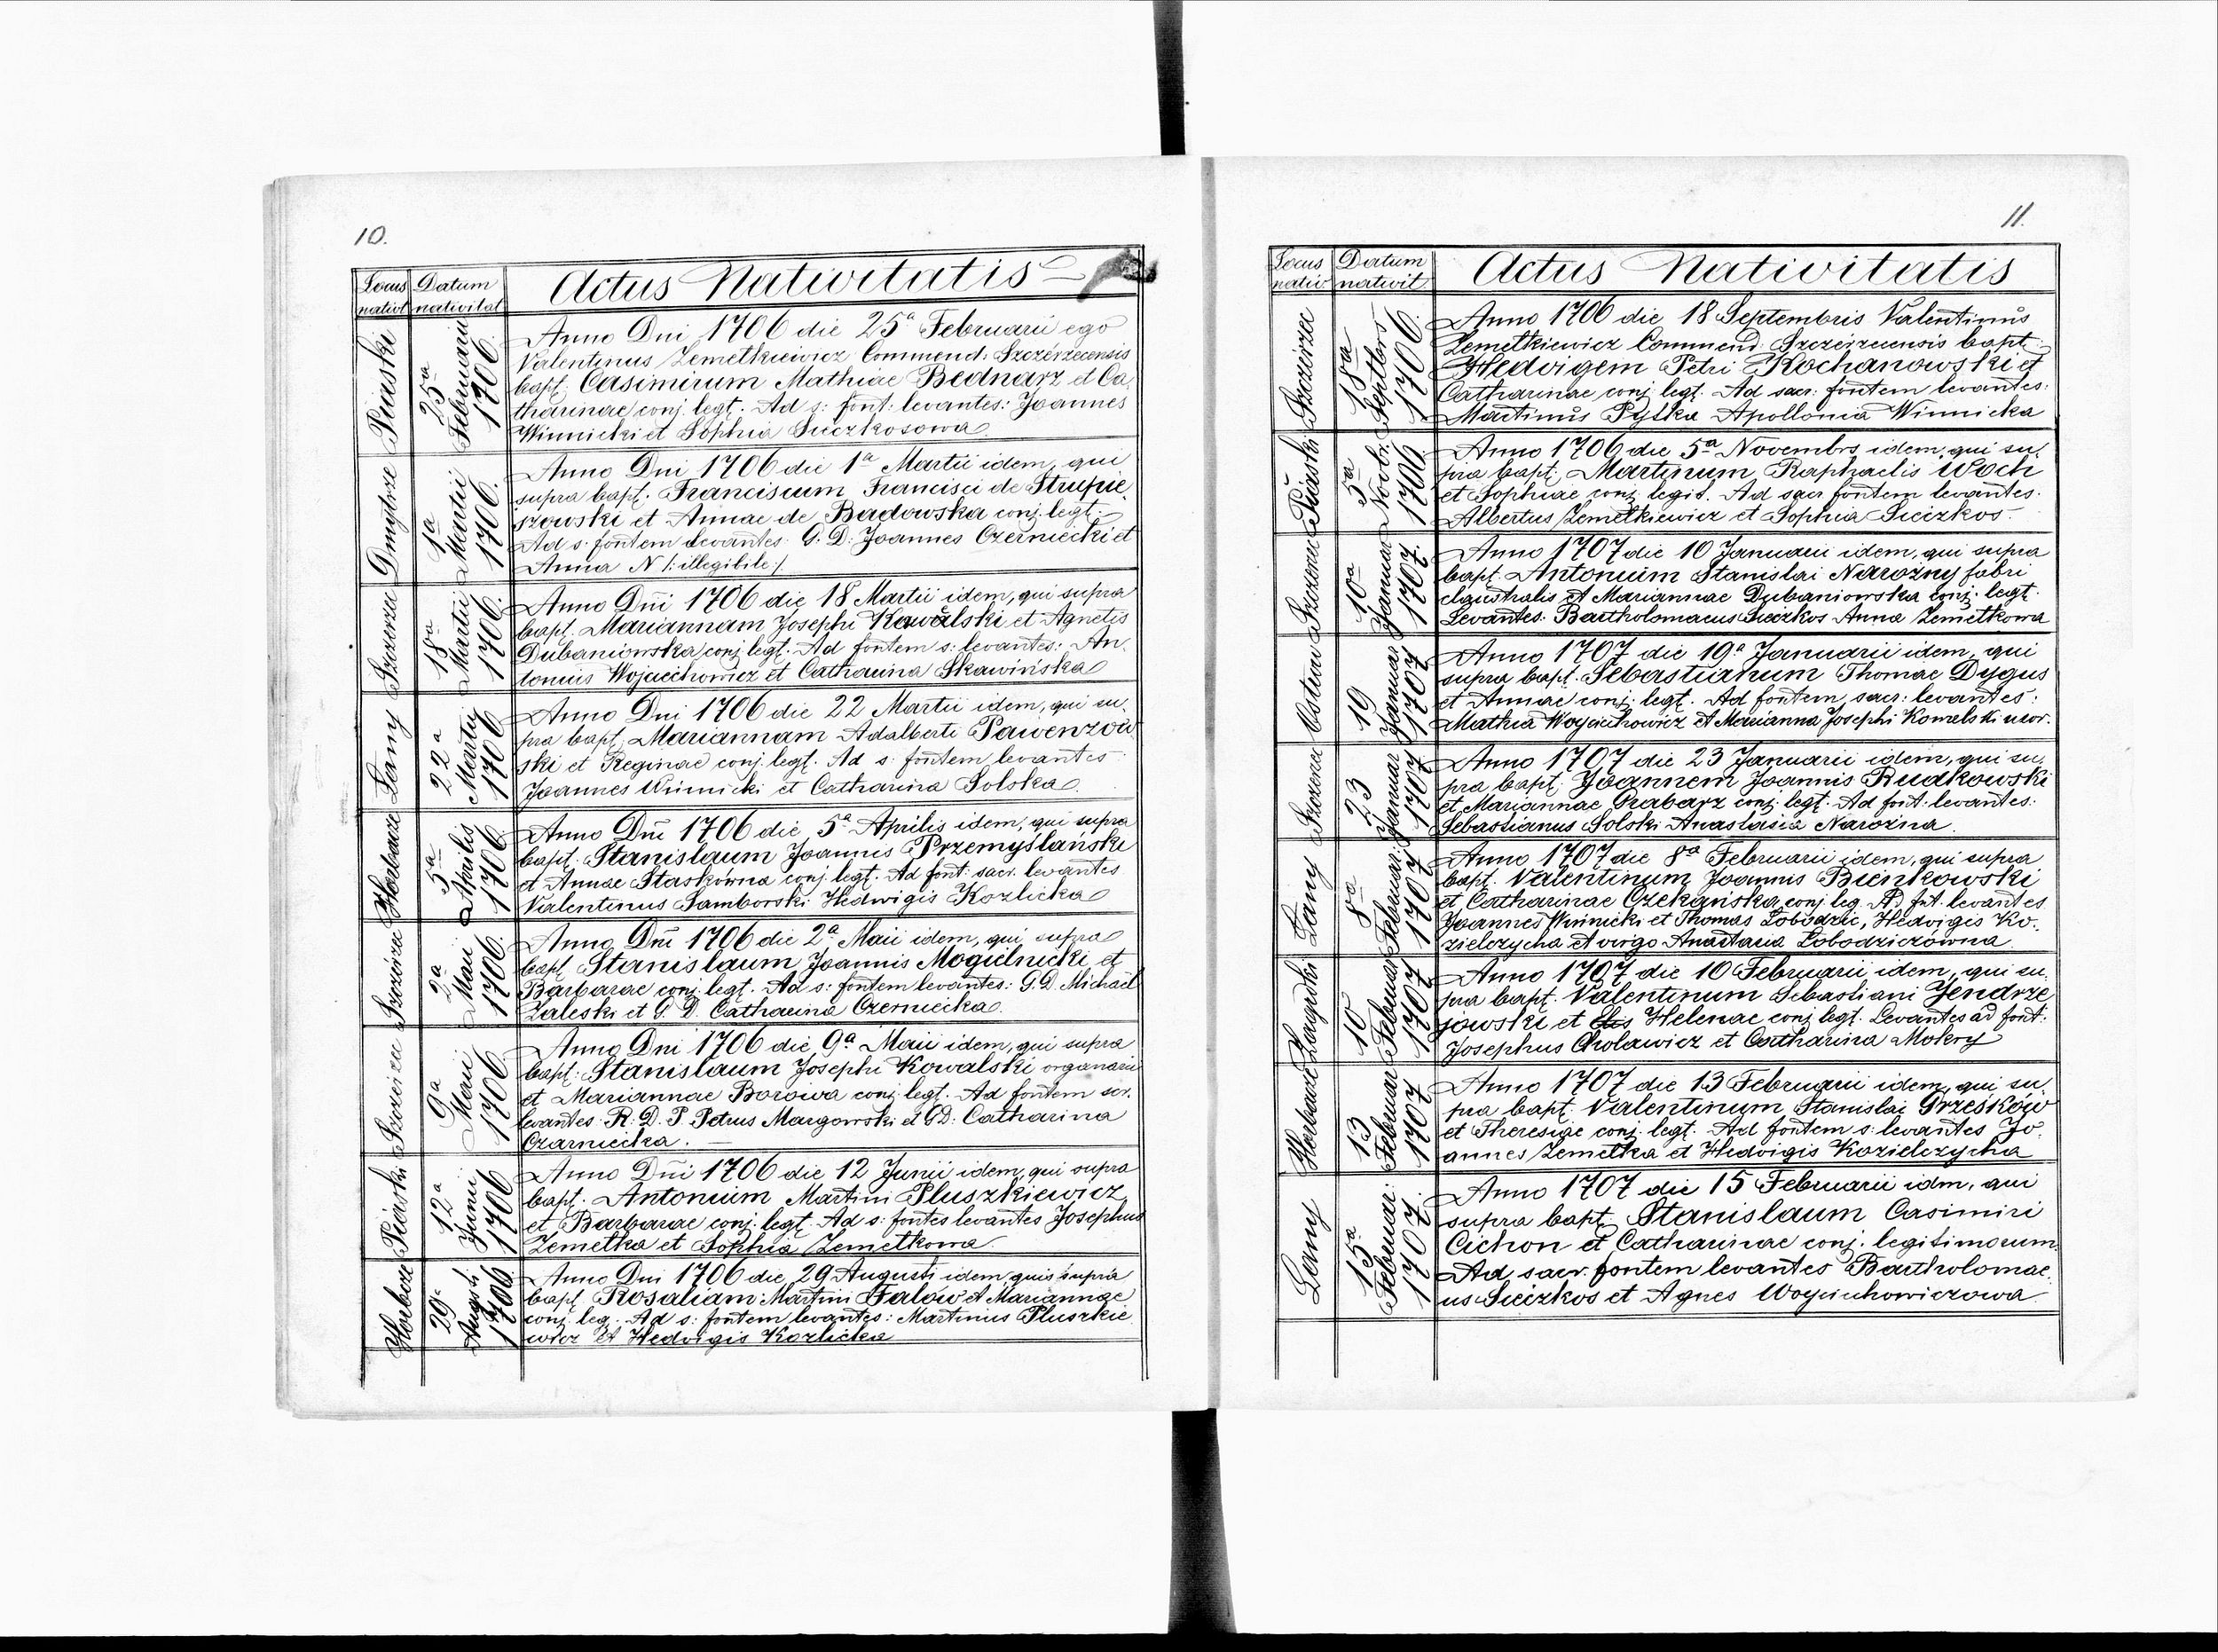 10.
Locus nativt
Datum nativitat
Actus Nativitatis
Piaski
25a Februarii 1706.
Anno Dni 1706 die 25a Februarii ego
Valentinus Zemetkiewicz Commend: Szczérzecensis
bapt. Casimirum Mathiae Bednarz et Ca,
tharinae conj. legt. Ad s: font: levantes: Joannes
Winnicki et Sophia Sieczkosowa.
Dmytrze
1a Martii 1706.
Anno Dni 1706 die 1a Martii idem, qui
supra bapt. Franciscum Francisci de Strupie,
szowski et Annae de Badowska conj. legt.
Ad s: fontem levantes: G. D. Joannes Czerniecki et
Anna N /: illegibile :/
Szczerzec
18va Martii 1706.
Anno Dni 1706 die 18 Martii idem, qui supra
bapt. Mariannam Josephi Kowalski et Agnetis
Dubaniowska conj. legt. Ad fontem s: levantes: An,
tonius Wojciechowicz et Catharina Skawińska
Łany
22a Martij 1706
Anno Dni 1706 die 22 Martii idem, qui su,
pra bapt. Mariannam Adalberti Pawenzow
ski et Reginae conj. legt. Ad s: fontem levantes:
Joannes Winnicki et Catharina Solska.
Horbacze
5a Aprilis 1706.
Anno Dni 1706 die 5a Aprilis idem, qui supra
bapt. Stanislaum Joannis Przemyślański
et Annae Staskówna conj. legt. Ad font: sacr. levantes
Valentinus Samborski Hedwigis Kozlicka
Szczérzec
2a Maii 1706.
Anno Dni 1706 die 2a Maii idem, qui supra
bapt. Stanislaum Joannis Mogielnicki et
Barbarae conj. legt. Ad s: fontem levantes: G. D. Michael
Zaleski et G. D. Catharina Czerniecka.
Szczérzec
9a Maii 1706
Anno Dni 1706 die 9a Maii idem, qui supra
bapt: Stanislaum Josephi Kowalski organarii
et Mariannae Borowa conj. legt. Ad fontem sor.
levantes R. D. P. Petrus Margowski et GD: Catharina
Czarniecka.
Piaski
12a Junii 1706
Anno Dni 1706 die 12 Junii idem, qui supra
bapt. Antonium Martini Pluszkiewicz
et Barbarae conj. legt. Ad s: fontes levantes Josephus
Zemetka et Sophia Zemetkowa.
Horbacze
29a Augsti 1706
Anno Dni 1706 die 29 Augusti idem, quis supra
bapt. Rosaliam Martini Falow et Mariannae
conj. leg. Ad s: fontem levantes: Martinus Pluszkie
wicz et Hedvigis Kozlicka
11.
Locus nativ
Datum nativit.
Actus Nativitatis
Szczérzec
18va Septbrs 1706.
Anno 1706 die 18 Septembris Valentinus
Zemetkiewicz Commend: Szczérzecensis bapt.
Hedvigem Petri Kochanowski et
Catharinae conj. legt. Ad sacr: fontem levantes:
Martinus Pytka Apollonia Winnicka
Piaski
5a Novbr: 1706
Anno 1706 die 5a Novembrs idem, qui su,
pra bapt. Martinum Raphaelis Woch
et Sophiae conj. legit. Ad sacr fontem levantes.
Albertus Zemetkiewicz et Sophia Sieczkos.
10a Januar 1707.
Anno 1707 die 10 Januarii idem, qui supra
bapt. Antonium Stanislai Narożny fabri
claustralis et Mariannae Dubaniowska conj. legt.
Levantes. Bartholomaeus Sieczkos Anna Zemetkowa
Ostrow
19 Januar 1707
Anno 1707 die 19a Januarii idem, qui
supra bapt. Sebastianum Thomae Dygus
et Annae conj. legt. Ad fontem sacr: levantes:
Mathia Woyciechowicz et Marianna Josephi Kowalski uxor.
23 Januar 1707
Anno 1707 die 23 Januarii idem, qui su,
pra bapt. Joannem Joannis Rudkowski
et Mariannae Grabarz conj. legt. Ad font: levantes:
Sebastianus Solski Anastasia Narożna.
Łany
8a Februar: 1707
Anno 1707 die 8a Februarii idem, qui supra
bapt. Valentinum Joannis Bienkowski
et Catharinae Czekańska conj. leg. Ad fnt. levantes
Joannes Winnicki et Thomas Łobodzic, Hedvigis Ko,
zielczycha et virgo Anastasia Łobodziczówna
10 Februar 1707
Anno 1707 die 10 Februarii idem, qui su,
pra bapt. Valentinum Sebastiani Jendrze
jowski et Helenae conj. legt. Levantes ad font:
Josephus Cholawicz et Catharina Mokry
Horbacze
13 Februar 1707
Anno 1707 die 13 Februarii idem, qui su,
pra bapt. Valentinum Stanislai Grześków
et Theresiae conj. legt. Ad fontem s: levantes Jo,
annes Zemetka et Hedvigis Kozielczycha
Łany
15a Februar: 1707.
Anno 1707 die 15 Februarii idm, qui
supra bapt. Stanislaum Casimiri
Cichon et Catharinae conj. legitimorum.
Ad sacr. fontem levantes Bartholomae,
us Sieczkos et Agnes Woyciechowiczowa